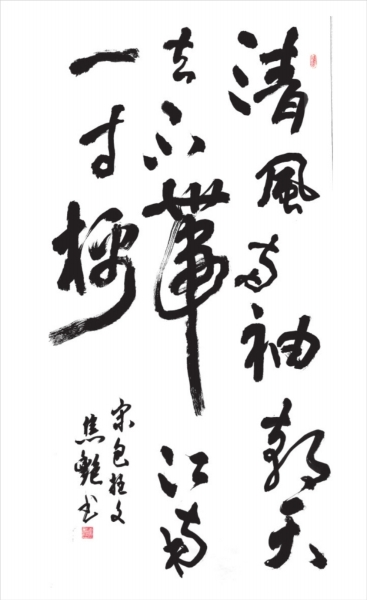 清風两袖朝天
去不帶江南
一寸棉
宋包拯文
焦书